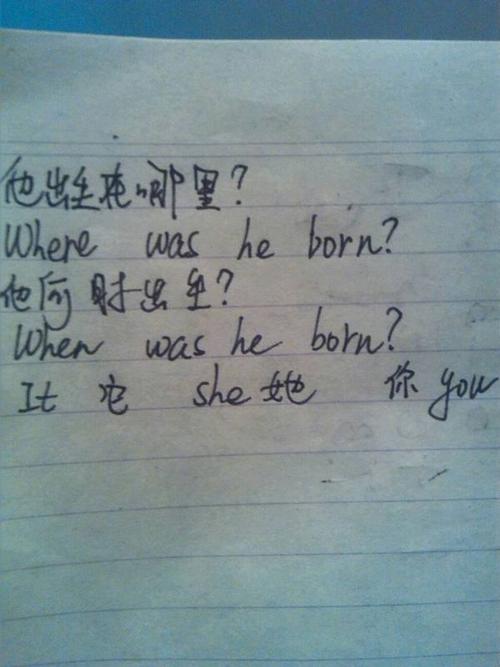 他出生在哪里?
Where was he born?
他何时出生?
When was he born?
It 它 she 她 你 you